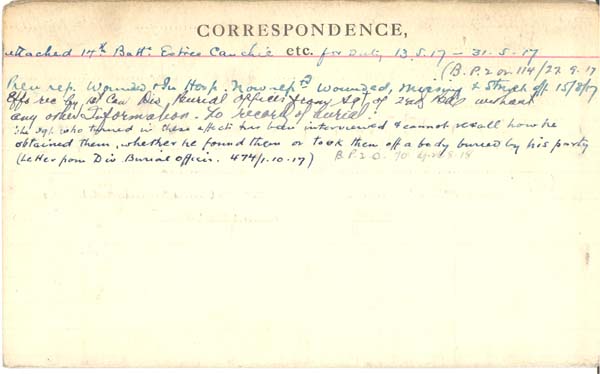 CORRESPONDENCE,
attached 14th Battn. Estrée Cauchie etc. for Duty 13.5.17 - 31-5-17
(B.P.2 or 114/22.9.17
Prev rep. Wounded & In Hosp. Now rep'd Wounded, Missing & Struck off 15/8/17
Effs rec by 1st Can Div. Burial Officer from Sgt of 2nd Bde without
any other information. No record of burial.
The sgt. who turned in these effects has been interviewed & cannot recall how he
obtained them, whether he found them or took them off a body buried by his party
(Letter from Div Burial Officer. 474/1.10.17) B.P.2 O. 70